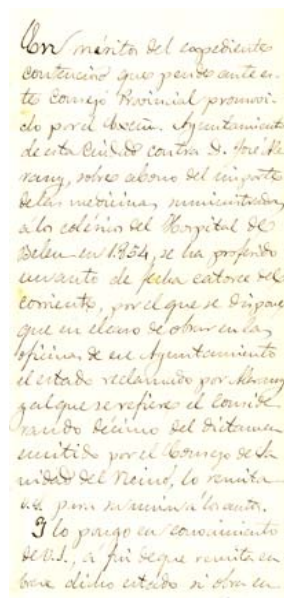 En méritos del expediente
contencioso que pende ante es-
te Consejo Provincial promovi-
do por el Excmo. Ayuntamiento
de esta Ciudad contra D. José Ma
rany, sobre abono del importe
de las medicinas suministradas
á los coléricos del Hospital de
Belen en 1.854, se ha proferido
un auto de fecha catorce del
corriente, por el que se dispone
que en el caso de obrar en las
oficinas de ese Ayuntamiento
el estado reclamado por Marany
y al que se refiere el conside
rando décimo del dictamen
emitido por el Consejo de Sa
nidad del Reino, lo remita
V.S. para su union á los autos.
Y lo pongo en conocimiento
de V.S., á fin de que remita en
breve dicho estado si obra en